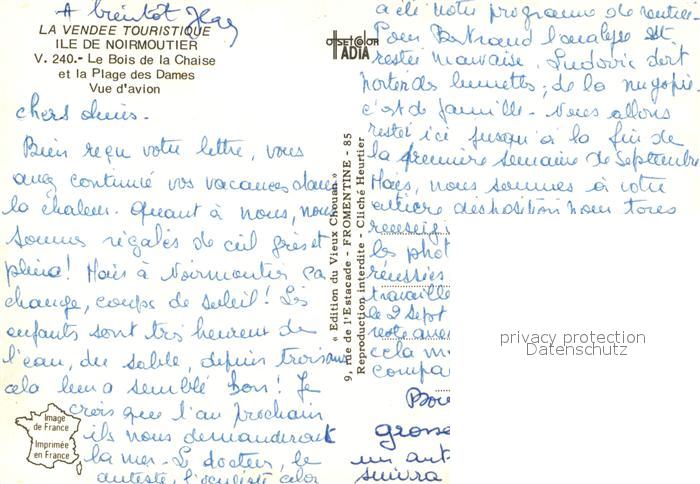 A bientôt
LA VENDEE TOURISTIQUE
ILE DE NOIRMOUTIER
V. 240.- Le Bois de la Chaise
et la Plage des Dames
Vue d'avion
chers amis.
Bien reçu votre lettre, vous
avez continué vos vacances dans
la chaleur. Quant à nous, nous
sommes régalés de ciel gris et
pluie! Mais à Noirmoutier ça
change, coups de soleil! Les
enfants sont très heureux de
l'eau, du sable, depuis trois ans
cela leur a semblé bon! Je
crois que l'an prochain
ils nous demanderont
la mer. Le docteur, le
dentiste, l'oculiste cela
Image
de France
Imprimée
en France
OFFSET COLOR
ADIA
« Edition du Vieux Chouan »
9, rue de l'Estacade - FROMENTINE - 85
Reproduction interdite - Cliché Heurtier
a été notre programme de rentrée.
Pour Bertrand l'analyse est
restée mauvaise. Ludovic doit
porter des lunettes; de la myopie.
c'est de famille. Nous allons
rester ici jusqu'à la fin de
la première semaine de septembre
Mais, nous sommes à votre
entière disposition pour tous
renseig
les phot
réussies
travaille
le 2 sept
reste avec
cela m
compa
Bon
grosse
un aut
suivra
privacy protection
Datenschutz